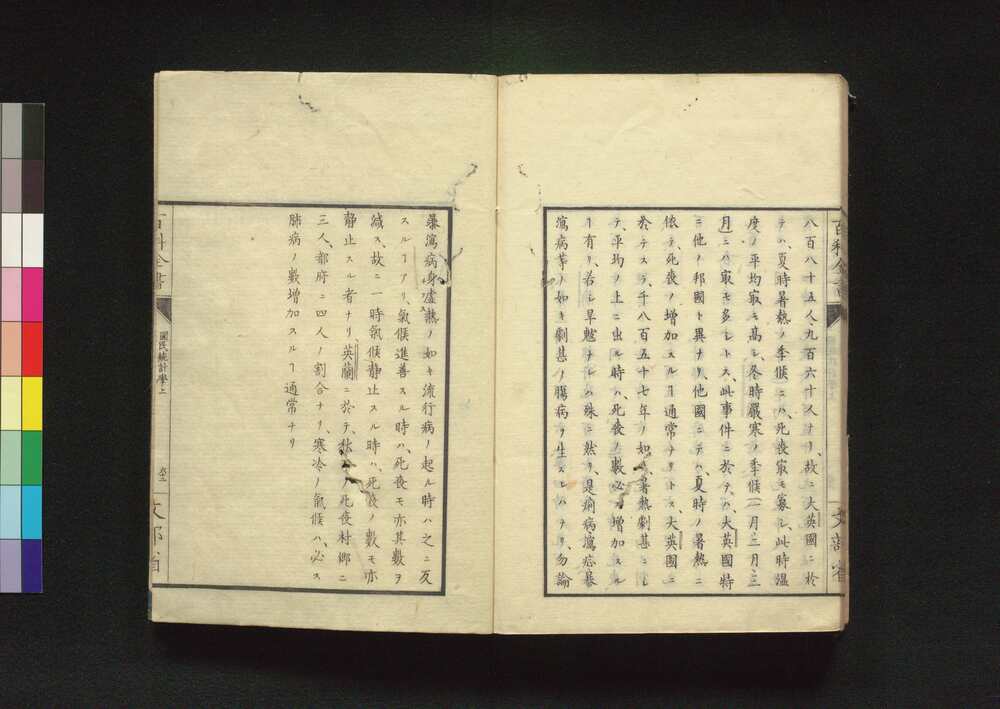 百科全書
文部省
八百八十五人九百六十人ナリ、故ニ大英國ニ於
テハ、夏時暑熱ノ季候ニハ、死喪㝡モ寡シ、此時溫
度ノ平均㝡モ高シ、冬時嚴寒ノ季候一月二月三
月ニハ㝡モ多シトス、此事件ニ於テハ、大英國特
ニ他ノ邦國ト異ナリ、他國ニテハ、夏時ノ暑熱ニ
依テ、死喪ノ增加スルヿ通常ナリトス、大英國ニ
於テスラ、千八百五十七年ノ如キ暑熱劇甚ニシ
テ、平均ノ上ニ出ル時ハ、死喪ノ數必ス增加スル
ヿ有リ、若シ旱魃ナレハ殊ニ然リ、是痢病瀉恙暴
瀉病等ノ如キ劇甚ノ膓病ヲ生スレハナリ、勿論
暴瀉病身虛熱ノ如キ流行病ノ起ル時ハ之ニ反
スルヿアリ、氣候進善スル時ハ、死喪モ亦其數ヲ
減ス、故ニ一時氣候靜止スル時ハ、死喪ノ數モ亦
靜止スル者ナリ、英蘭ニ於テ、秋ノ死喪村鄉ニ
三人、都府ニ四人ノ割合ナリ、寒冷ノ氣候ハ、必ス
肺病ノ數增加スルヿ通常ナリ
百科全書
國民統計學上
文部省